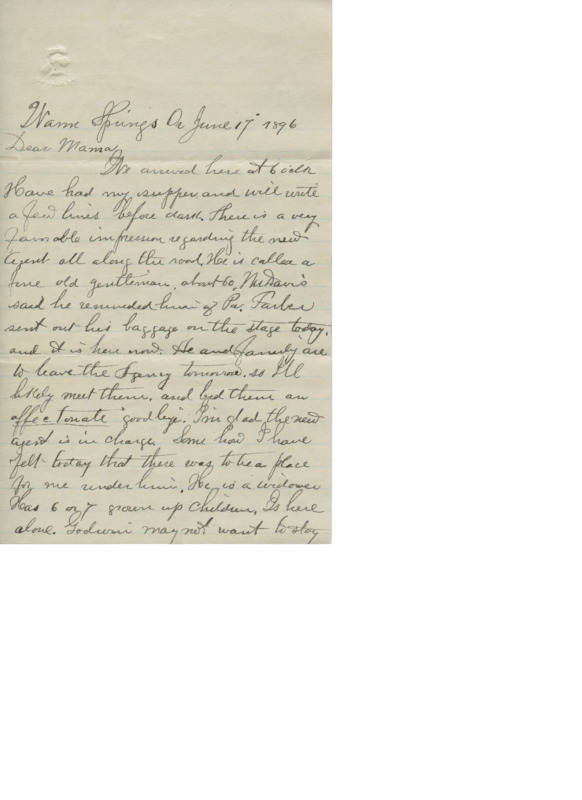 Warm Springs Or June 17 1896
Dear Mama,
We arrived here at 6 oclk
Have had my supper and will write
a few lines before dark. There is a very
favorable impression regarding the new
Agent all along the road. He is called a
fine old gentleman, about 60, Mr Davis
said he reminded him of Pa. Farber
sent out his baggage on the stage today.
and it is here now. He and family are
to leave the Agency tomorrow. so I'll
likely meet them. and bid them an
affectonate "good bye". I'm glad the new
agent is in charge. Some how I have
felt today that there was to be a place
for me under him. He is a widower
Has 6 or 7 grown up children. Is here
alone. Godwin may not want to stay